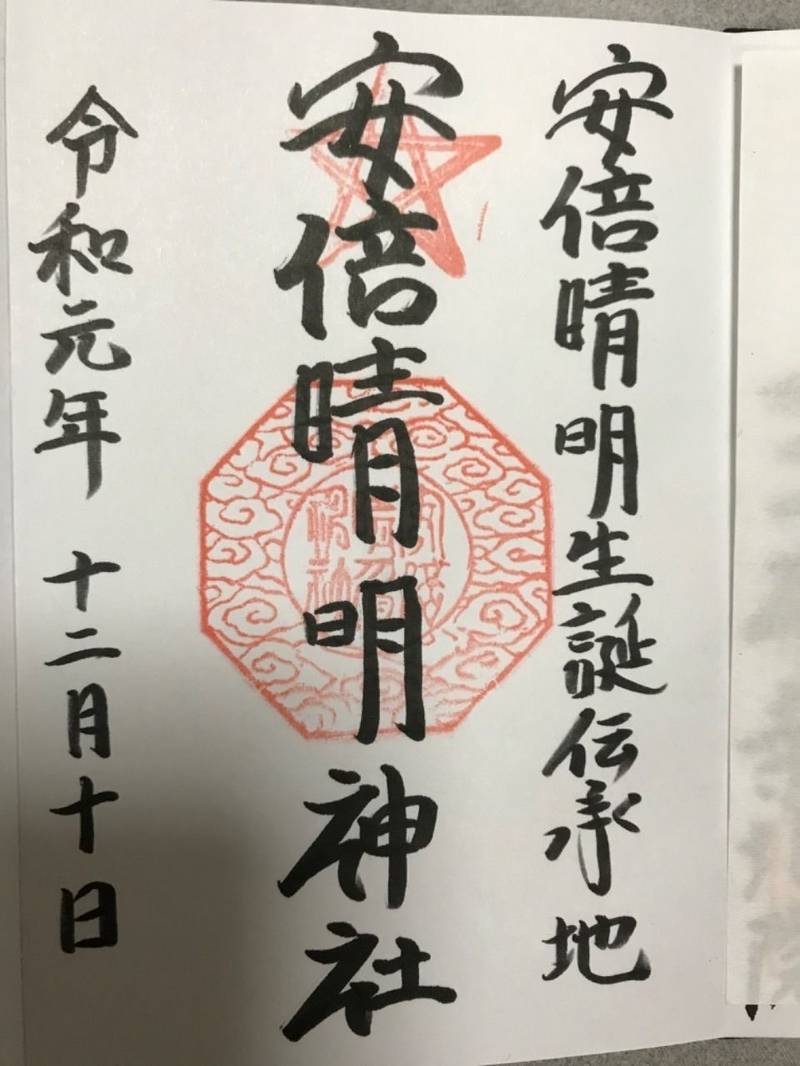 安倍晴明生誕伝承地
安倍晴明神社
令和元年 十二月十日